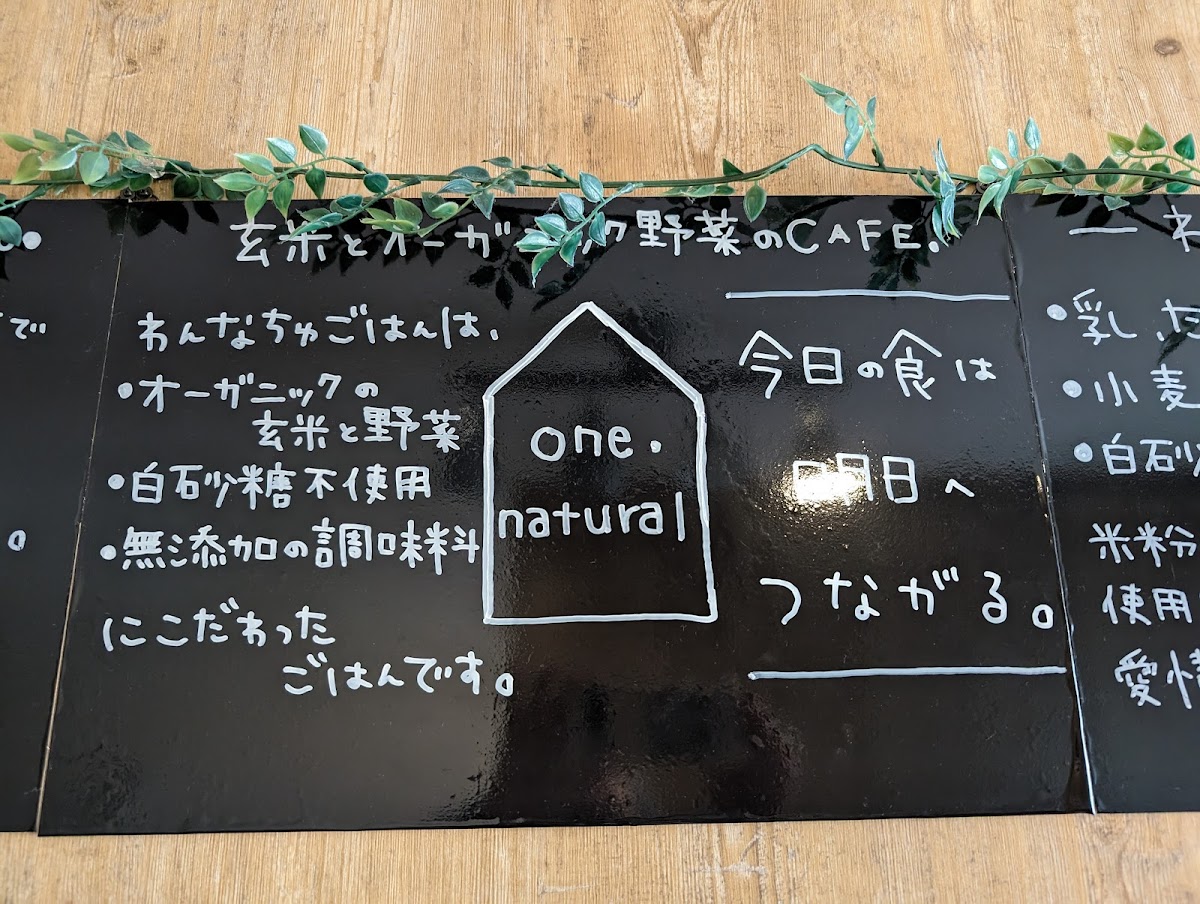 玄米とオーガニック野菜のCAFE.
わんなちゅごはんは.
•オーガニックの
玄米と野菜
•白砂糖不使用
•無添加の調味料
にこだわった
ごはんです。
one.
natural
今日の食は
明日へ
つながる。
で
。
•乳
•小麦
•白砂
米粉
使用
愛情